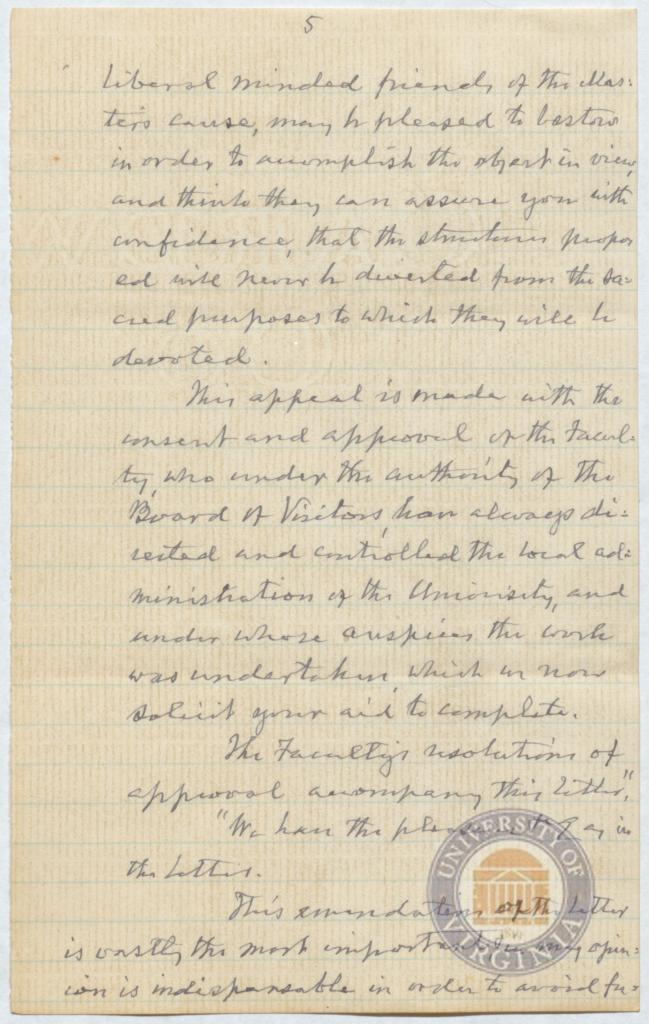 5
liberal minded friends of the Mas-
ter's cause, may be pleased to bestow
in order to accomplish the object in view,
and think they can assure you with
confidence, that the structures propos
ed will never be diverted from the sa-
cred purposes to which they will be
devoted.
This appeal is made with the
consent and approval of the Facul-
ty, who under the authority of the
Board of Visitors, have always di-
rected and controlled the local ad-
ministration of the University, and
under whose auspices the work
was undertaken, which we now
solicit your aid to complete.
The Faculty's resolutions of
approval accompany this letter",
"We have the pleasure &c as in
the letter.
This emendation of the letter
is vastly the most important & in my opin-
ion is indispensable in order to avoid fu-
UNIVERSITY OF
VIRGINIA